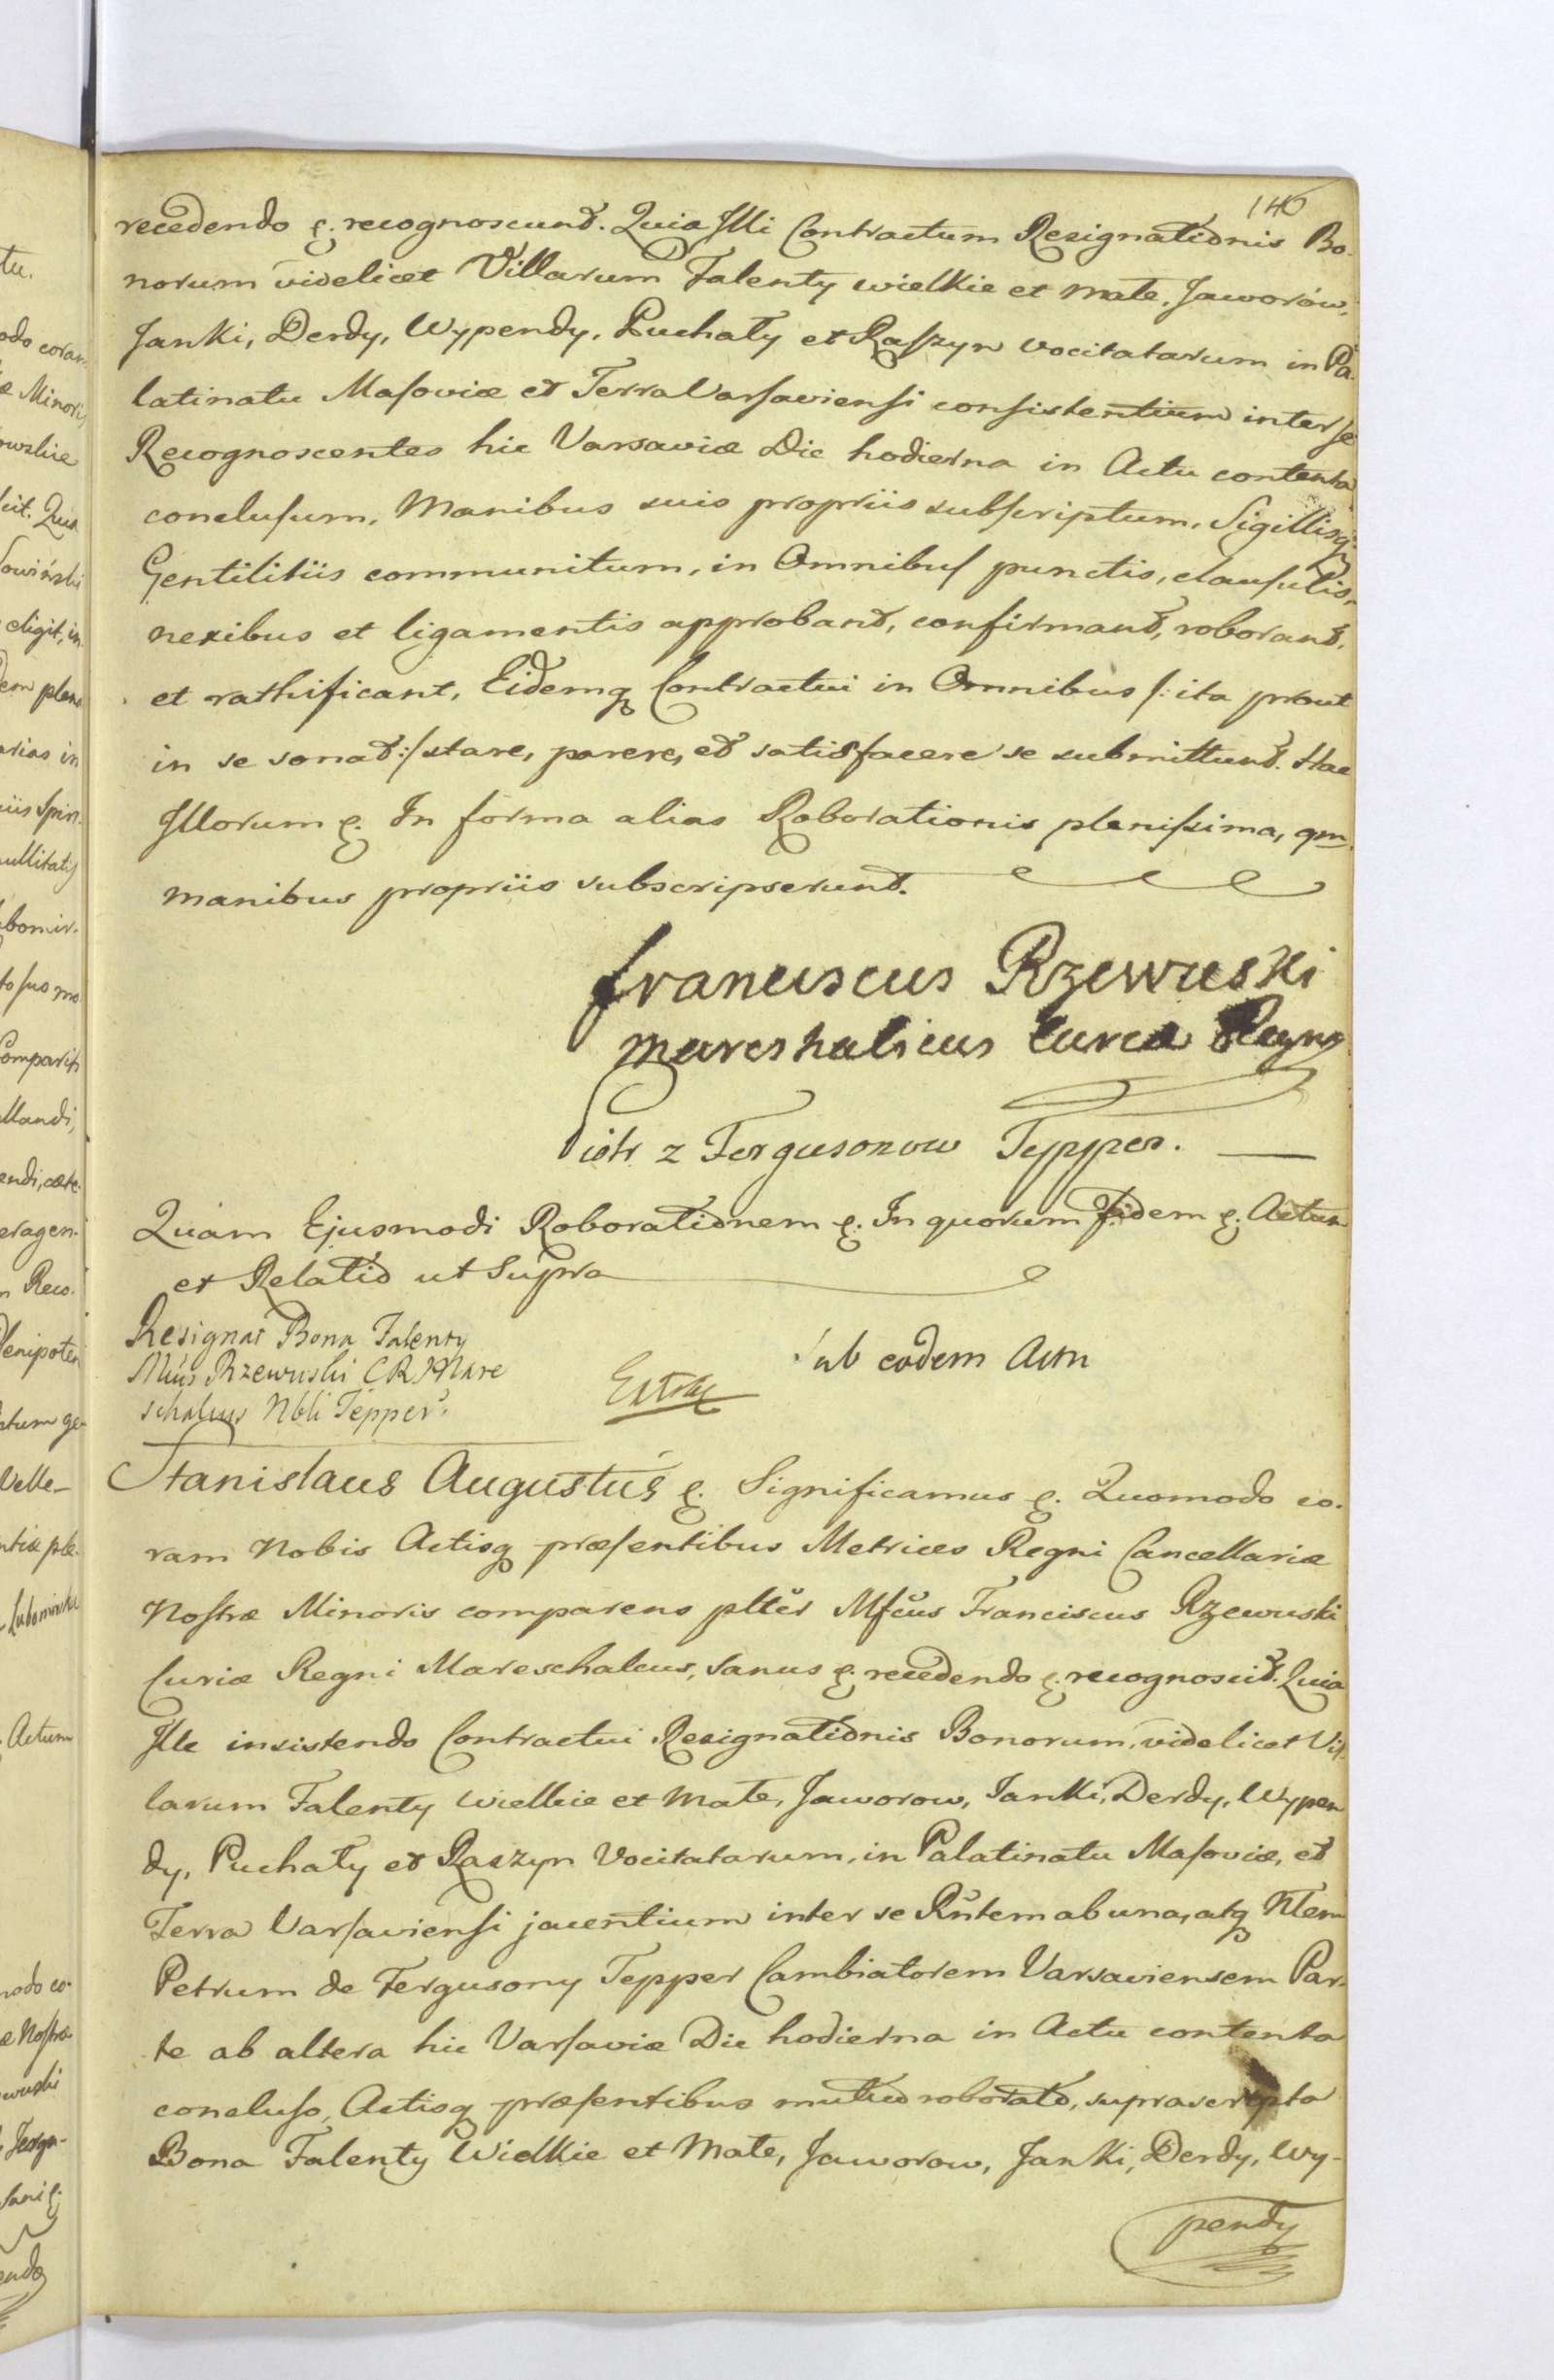 146
recedendo &. recognoscunt. Quia Illi Contractum Resignationis Bo-
norum videlicet Villarum Falenty wielkie et małe, Jaworów,
Janki, Derdy, Wypendy, Puchały et Raſzyn vocitatarum in Pa-
latinatu Maſoviæ et Terra Varſaviensi consistentium inter se
Recognoscentes hic Varsaviæ Die hodierna in Actu contenta
concluſum, Manibus suis propriis subſcriptum, Sigillisq
Gentilitiis communitum, in Omnibuſ punctis, clauſulis,
nexibus et ligamentis approbant, confirmant, roborant,
et rathificant, Eidemq Contractui in Omnibus /: ita prout
in se sonat :/ stare, parere, et satisfacere se submittunt. Hac
Illorum &. In forma alias Roborationis pleniſsima, qm
manibus propriis subscripserunt.
franciscus Rzewuski
mareshalicus Curea Regny
Piotr z Fergusonow Tepper.
Quam Ejusmodi Roborationem &. In quorum fidem &. Actum
et Relatio ut Supra
Resignat Bona Falenty
Mcus Rzewuski CR Mare
schalcus Nbli Tepper.
Extrac
Sub eodem Actu
Stanislaus Augustus &. Significamus &. Quomodo co-
ram Nobis Actisq præſentibus Metrices Regni Cancellariæ
Noſtræ Minoris comparens plter Mfcus Franciscus Rzewuski
Curiæ Regni Mareschalcus, sanus &. recedendo &. recognoscit. Quia
Ille insistendo Contractui Resignationis Bonorum, videlicet Vil-
larum Falenty wielkie et Małe, Jaworow, Janki, Derdy, Wypen
dy, Puchały et Raszyn Vocitatarum, in Palatinatu Maſoviæ, et
Terra Varſavienſi jacentium inter se Rntem ab una, atq Nlem
Petrum de Fergusony Tepper Cambiatorem Varsaviensem Par-
te ab altera hic Varſaviæ Die hodierna in Actu contenta
concluſo, Actisq præſentibus mutuo roborato, suprascripta
Bona Falenty Wielkie et Małe, Jaworow, Janki, Derdy, Wy-
pendy